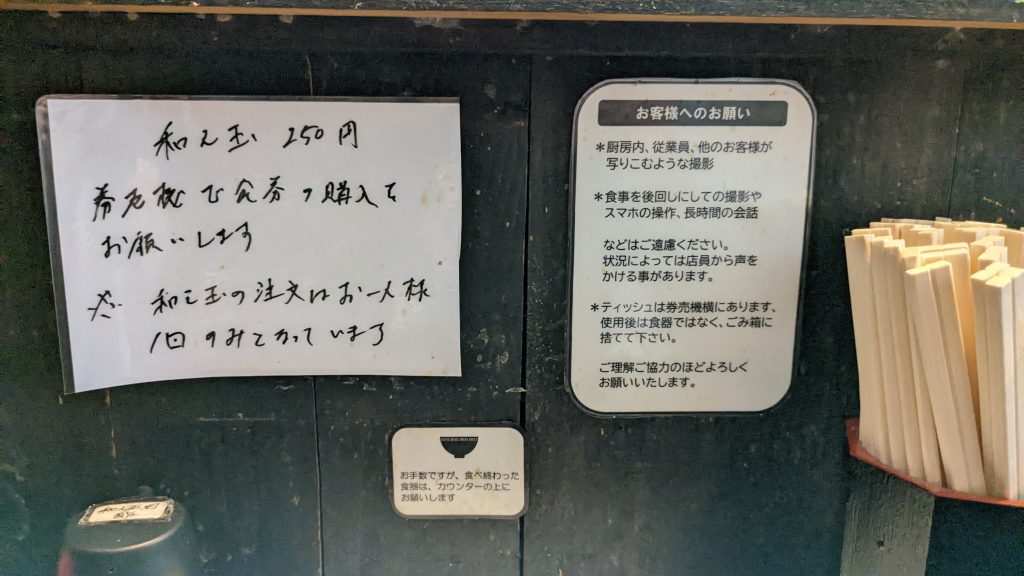 和え玉 250円
券売機で食券の購入を
お願いします
※ 和え玉の注文はお一人様
1回のみとなっています
お客様へのお願い
*厨房内、従業員、他のお客様が
写りこむような撮影
*食事を後回しにしての撮影や
スマホの操作、長時間の会話
などはご遠慮ください。
状況によっては店員から声を
かける事があります。
*ティッシュは券売機横にあります、
使用後は食器ではなく、ごみ箱に
捨てて下さい。
ご理解ご協力のほどよろしく
お願いいたします。
お手数ですが、食べ終わった
食器は、カウンターの上に
お願いします